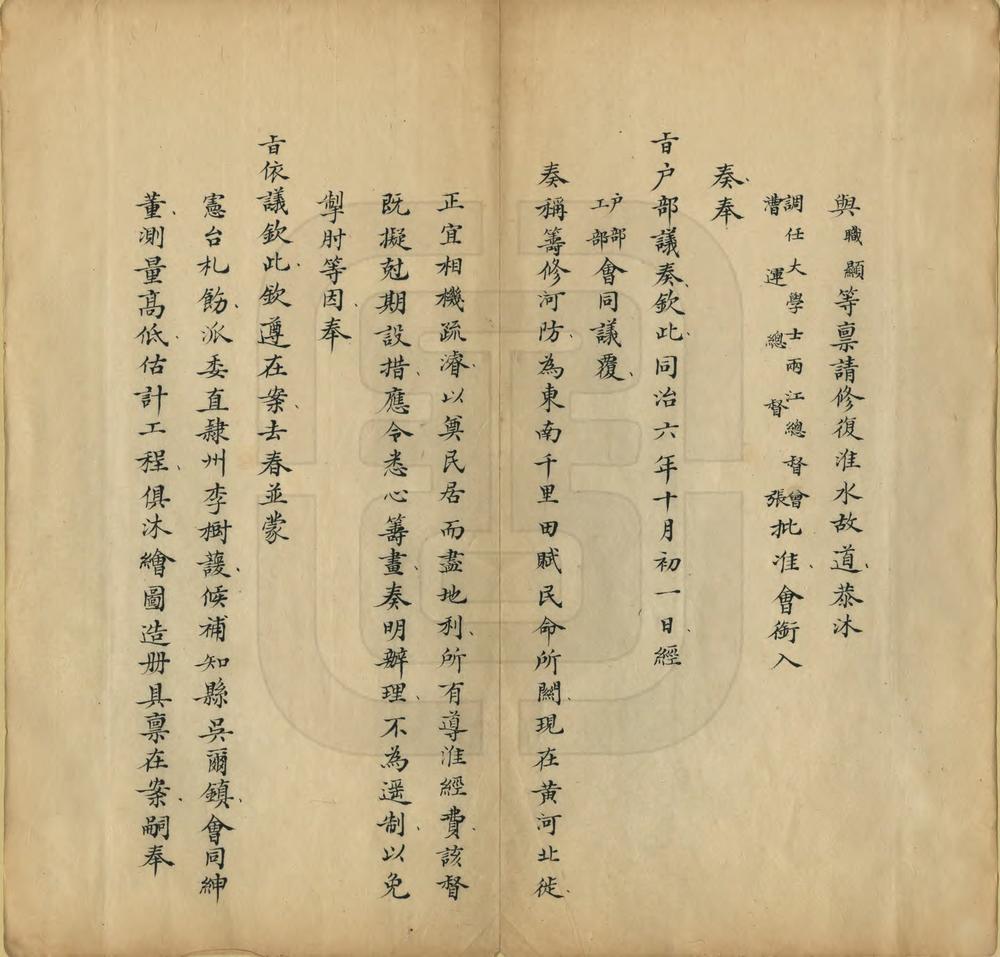 與職顯等禀請修復淮水故道恭沐
調任大學士兩江總督曾漕運總督張批准會銜入
奏奉
旨户部議奏欽此同治六年十月初一日經
户部工部會同議覆
奏稱籌修河防為東南千里田賦民命所關現在黄河北徙
正宜相機疏濬以奠民居而盡地利所有導淮經費該督
既擬尅期設措應令悉心籌畫奏明辦理不為遥制以免
掣肘等因奉
旨依議欽此欽遵在案去春並蒙
憲台札飭派委直隷州李樹護候補知縣吳爾鎮會同紳
董測量高低估計工程俱沐繪圖造册具禀在案嗣奉